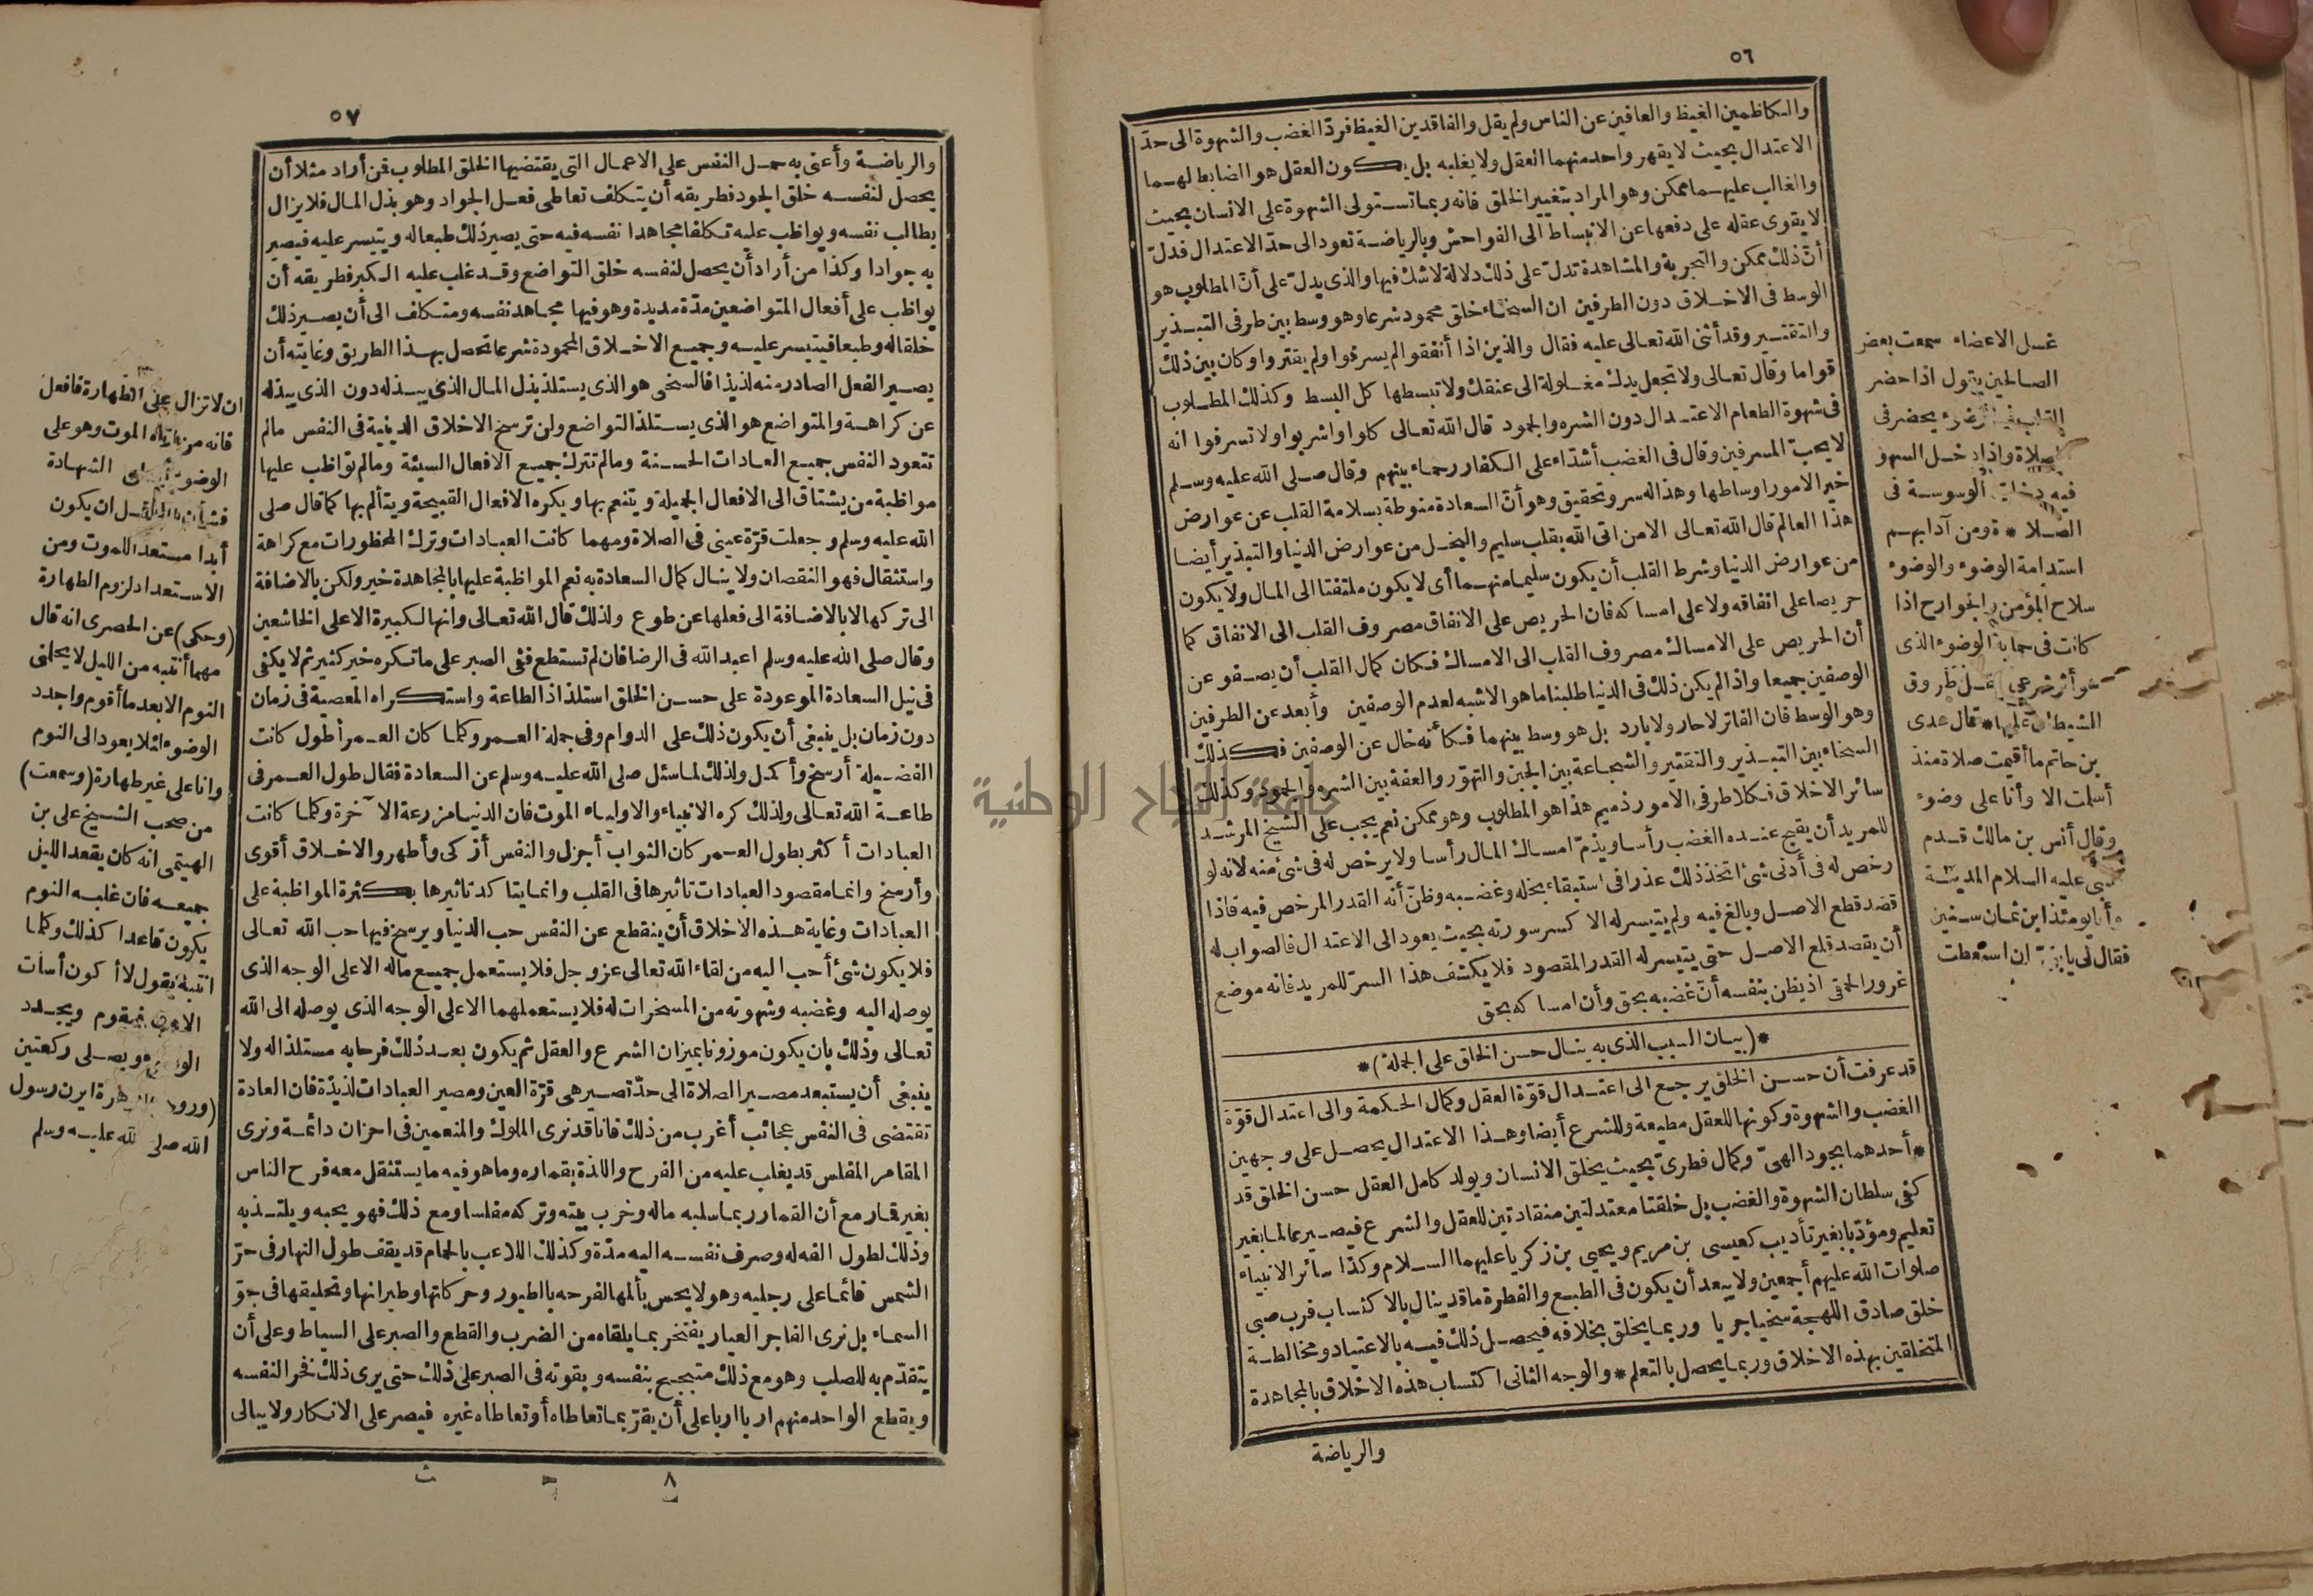 ٥٦
والكاظمين الغيظ والعافين عن الناس ولم يقل والفاقدين الغيظ فردّ الغضب والشهوة الى حدّ
الاعتدال بحيث لا يقهر واحد منهما العقل ولا يغلبه بل يكون العقل هو الضابط لهما
والغالب عليهما ممكن وهو المراد بتغيير الخلق فانه ربما تستولى الشهوة على الانسان بحيث
لا يقوى عقله على دفعها عن الانبساط الى الفواحش وبالرياضة تعود الى حدّ الاعتدال فدلّ
أنّ ذلك ممكن والتجربة والمشاهدة تدلّ على ذلك دلالة لا شك فيها والذى يدلّ على أنّ المطلوب هو
الوسط فى الاخلاق دون الطرفين ان السخاء خلق محمود شرعا وهو وسط بين طرفى التبذير
والتقتير وقد أثنى الله تعالى عليه فقال والذين اذا أنفقوا لم يسرفوا ولم يقتروا وكان بين ذلك
قواما وقال تعالى ولا تجعل يدك مغلولة الى عنقك ولا تبسطها كل البسط وكذلك المطلوب
فى شهوة الطعام الاعتدال دون الشره والجمود قال الله تعالى كلوا واشربوا ولا تسرفوا انه
لا يحب المسرفين وقال فى الغضب أشدّاء على الكفار رحماء بينهم وقال صلى الله عليه وسلم
خير الامور اوساطها وهذا له سر وتحقيق وهو أنّ السعادة منوطة بسلامة القلب عن عوارض
هذا العالم قال الله تعالى الا من اتى الله بقلب سليم والبخل من عوارض الدنيا والتبذير أيضا
من عوارض الدنيا وشرط القلب أن يكون سليما منهما أى لا يكون ملتفتا الى المال ولا يكون
حريصا على انفاقه ولا على امساكه فان الحريص على الانفاق مصروف القلب الى الانفاق كما
أن الحريص على الامساك مصروف القلب الى الامساك فكان كمال القلب أن يصفو عن
الوصفين جميعا واذا لم يكن ذلك فى الدنيا طلبنا ما هو الاشبه لعدم الوصفين وأبعد عن الطرفين
وهو الوسط فان الفاتر لا حار ولا بارد بل هو وسط بينهما فكأنه خال عن الوصفين فكذلك
السخاء بين التبذير والتقتير والشجاعة بين الجبن والتهوّر والعفة بين الشره والجمود وكذلك
سائر الاخلاق فكلا طرفى الامور ذميم هذا هو المطلوب وهو ممكن نعم يجب على الشيخ المرشد
للمريد أن يقبح عنده الغضب رأسا ويذمّ امساك المال رأسا ولا يرخص له فى شئ منه لانه لو
رخص له فى أدنى شئ اتخذ ذلك عذرا فى استبقاء بخله وغضبه وظنّ أنه القدر المرخص فيه فاذا
قصد قطع الاصل وبالغ فيه ولم يتيسر له الا كسر سورته بحيث يعود الى الاعتدال فالصواب له
أن يقصد قلع الاصل حتى يتيسر له القدر المقصود فلا يكشف هذا السرّ للمريد فانه موضع
غرور الحمقى اذ يظن بنفسه أنّ غضبه بحق وأن امساكه بحق
*(بيان السبب الذى به ينال حسن الخلق على الجملة)*
قد عرفت أن حسن الخلق يرجع الى اعتدال قوّة العقل وكمال الحكمة والى اعتدال قوّة
الغضب والشهوة وكونها للعقل مطيعة وللشرع أيضا وهذا الاعتدال يحصل على وجهين
*أحدهما بجود الهىّ وكمال فطرىّ بحيث يخلق الانسان ويولد كامل العقل حسن الخلق قد
كفى سلطان الشهوة والغضب بل خلقتا معتدلتين منقادتين للعقل والشرع فيصير عالما بغير
تعليم ومؤدّبا بغير تأديب كعيسى بن مريم ويحيى بن زكريا عليهما السلام وكذا سائر الانبياء
صلوات الله عليهم أجمعين ولا يبعد أن يكون فى الطبع والفطرة ما قد ينال بالاكتساب فرب صبى
خلق صادق اللهجة سخيا جريا وربما يخلق بخلافه فيحصل ذلك فيه بالاعتياد ومخالطة
المتخلقين بهذه الاخلاق وربما يحصل بالتعلم * والوجه الثانى اكتساب هذه الاخلاق بالمجاهدة
والرياضة
غسل الاعضاء سمعت بعض
الصالحين يقول اذا حضر
القلب فى الوضوء يحضر فى
الصلاة واذا دخل السهو
فيه دخلت الوسوسة فى
الصلاة * ومن آدابهم
استدامة الوضوء والوضوء
سلاح المؤمن والجوارح اذا
كانت فى حماية الوضوء الذى
هو أثر شرعى يقل طروق
الشيطان عليها * قال عدى
بن حاتم ما أقيمت صلاة منذ
أسلمت الا وأنا على وضوء
وقال أنس بن مالك قدم
النبى عليه السلام المدينة
وأنا يومئذ ابن ثمان سنين
فقال لى يا بنىّ ان استطعت
جامعة النجاح الوطنية
٥٧
والرياضة وأعنى به حمل النفس على الاعمال التى يقتضيها الخلق المطلوب فمن أراد مثلا أن
يحصل لنفسه خلق الجود فطريقه أن يتكلف تعاطى فعل الجواد وهو بذل المال فلا يزال
يطالب نفسه ويواظب عليه تكلفا مجاهدا نفسه فيه حتى يصير ذلك طبعا له ويتيسر عليه فيصير
به جوادا وكذا من أراد أن يحصل لنفسه خلق التواضع وقد غلب عليه الكبر فطريقه أن
يواظب على أفعال المتواضعين مدّة مديدة وهو فيها مجاهد نفسه ومتكلف الى أن يصير ذلك
خلقا له وطبعا فيتيسر عليه وجميع الاخلاق المحمودة شرعا تحصل بهذا الطريق وغايته أن
يصير الفعل الصادر منه لذيذا فالسخى هو الذى يستلذ بذل المال الذى يبذله دون الذى يبذله
عن كراهة والمتواضع هو الذى يستلذ التواضع ولن ترسخ الاخلاق الدينية فى النفس مالم
تتعود النفس جميع العادات الحسنة ومالم تترك جميع الافعال السيئة ومالم تواظب عليها
مواظبة من يشتاق الى الافعال الجميلة ويتنعم بها ويكره الافعال القبيحة ويتألم بها كما قال صلى
الله عليه وسلم وجعلت قرّة عينى فى الصلاة ومهما كانت العبادات وترك المحظورات مع كراهة
واستثقال فهو النقصان ولا ينال كمال السعادة به نعم المواظبة عليها بالمجاهدة خير ولكن بالاضافة
الى تركها لا بالاضافة الى فعلها عن طوع ولذلك قال الله تعالى وانها لكبيرة الا على الخاشعين
وقال صلى الله عليه وسلم اعبد الله فى الرضا فان لم تستطع ففى الصبر على ما تكره خير كثير ثم لا يكفى
فى نيل السعادة الموعودة على حسن الخلق استلذاذ الطاعة واستكراه المعصية فى زمان
دون زمان بل ينبغى أن يكون ذلك على الدوام وفى جملة العمر وكلما كان العمر أطول كانت
الفضيلة أرسخ وأكمل ولذلك لما سئل صلى الله عليه وسلم عن السعادة فقال طول العمر فى
طاعة الله تعالى ولذلك كره الانبياء والاولياء الموت فان الدنيا مزرعة الآخرة وكلما كانت
العبادات أكثر بطول العمر كان الثواب أجزل والنفس أزكى وأطهر والاخلاق أقوى
وأرسخ وانما مقصود العبادات تاثيرها فى القلب وانما يتاكد تاثيرها بكثرة المواظبة على
العبادات وغاية هذه الاخلاق أن ينقطع عن النفس حب الدنيا ويرسخ فيها حب الله تعالى
فلا يكون شئ أحب اليه من لقاء الله تعالى عز وجل فلا يستعمل جميع ماله الا على الوجه الذى
يوصله اليه وغضبه وشهوته من المسخرات له فلا يستعملهما الا على الوجه الذى يوصله الى الله
تعالى وذلك بان يكون موزونا بميزان الشرع والعقل ثم يكون بعد ذلك فرحا به مستلذا له ولا
ينبغى أن يستبعد مصير الصلاة الى حدّ تصير هى قرّة العين ومصير العبادات لذيذة فان العادة
تقتضى فى النفس عجائب أغرب من ذلك فانا قد نرى الملوك والمنعمين فى احزان دائمة ونرى
المقامر المفلس قد يغلب عليه من الفرح واللذة بقماره وما هو فيه ما يستثقل معه فرح الناس
بغير قمار مع أن القمار ربما سلبه ماله وخرب بيته وتركه مفلسا ومع ذلك فهو يحبه ويلتذ به
وذلك لطول الفه له وصرف نفسه اليه مدّة وكذلك اللاعب بالحمام قد يقف طول النهار فى حرّ
الشمس قائما على رجليه وهو لا يحس بألمها لفرحه بالطيور وحركاتها وطيرانها وتحليقها فى جوّ
السماء بل نرى الفاجر العيار يفتخر بما يلقاه من الضرب والقطع والصبر على السياط وعلى أن
يتقدّم به للصلب وهو مع ذلك متبجح بنفسه وبقوته فى الصبر على ذلك حتى يرى ذلك فخر النفسه
ويقطع الواحد منهم اربا اربا على أن يقرّ بما تعاطاه أو تعاطاه غيره فيصر على الانكار ولا يبالى
٨ ح ث
ان لا تزال على الطهارة فافعل
فانه من اتاه الموت وهو على
الوضوء أعطى الشهادة
فشأن العاقل ان يكون
أبدا مستعدا للموت ومن
الاستعداد لزوم الطهارة
(وحكى) عن الحصرى انه قال
مهما أنتبه من الليل لا يحملنى
النوم الا بعد ما أقوم واجدد
الوضوء لئلا يعود الى النوم
وانا على غير طهارة (وسمعت)
من صحب الشيخ على بن
الهيتمى انه كان يقعد الليل
جميعه فان غلبه النوم
يكون قاعدا كذلك وكلما
انتبه يقول لا أكون أسأت
الادب فيقوم ويجدد
الوضوء ويصلى ركعتين
(وروى أبو هريرة ان رسول
الله صلى الله عليه وسلم